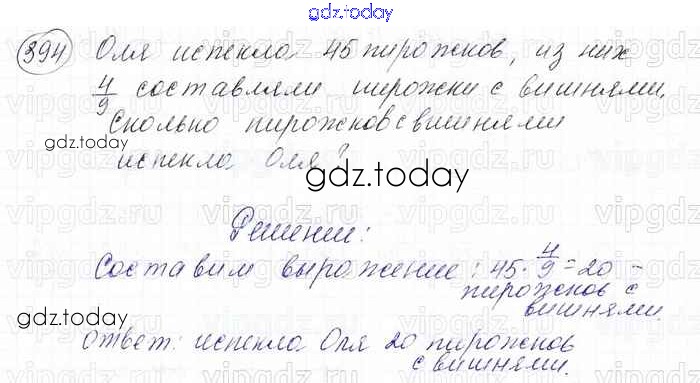 gdz.today
394 Оля испекла 45 пирожков, из них
4/9 составляли пирожки с вишнями.
Сколько пирожков с вишнями
gdz.today
испекла Оля?
gdz.today
Решение:
Составим выражение: 45 · 4/9 = 20 -
пирожков с
вишнями.
gdz.today
Ответ: испекла Оля 20 пирожков
с вишнями.